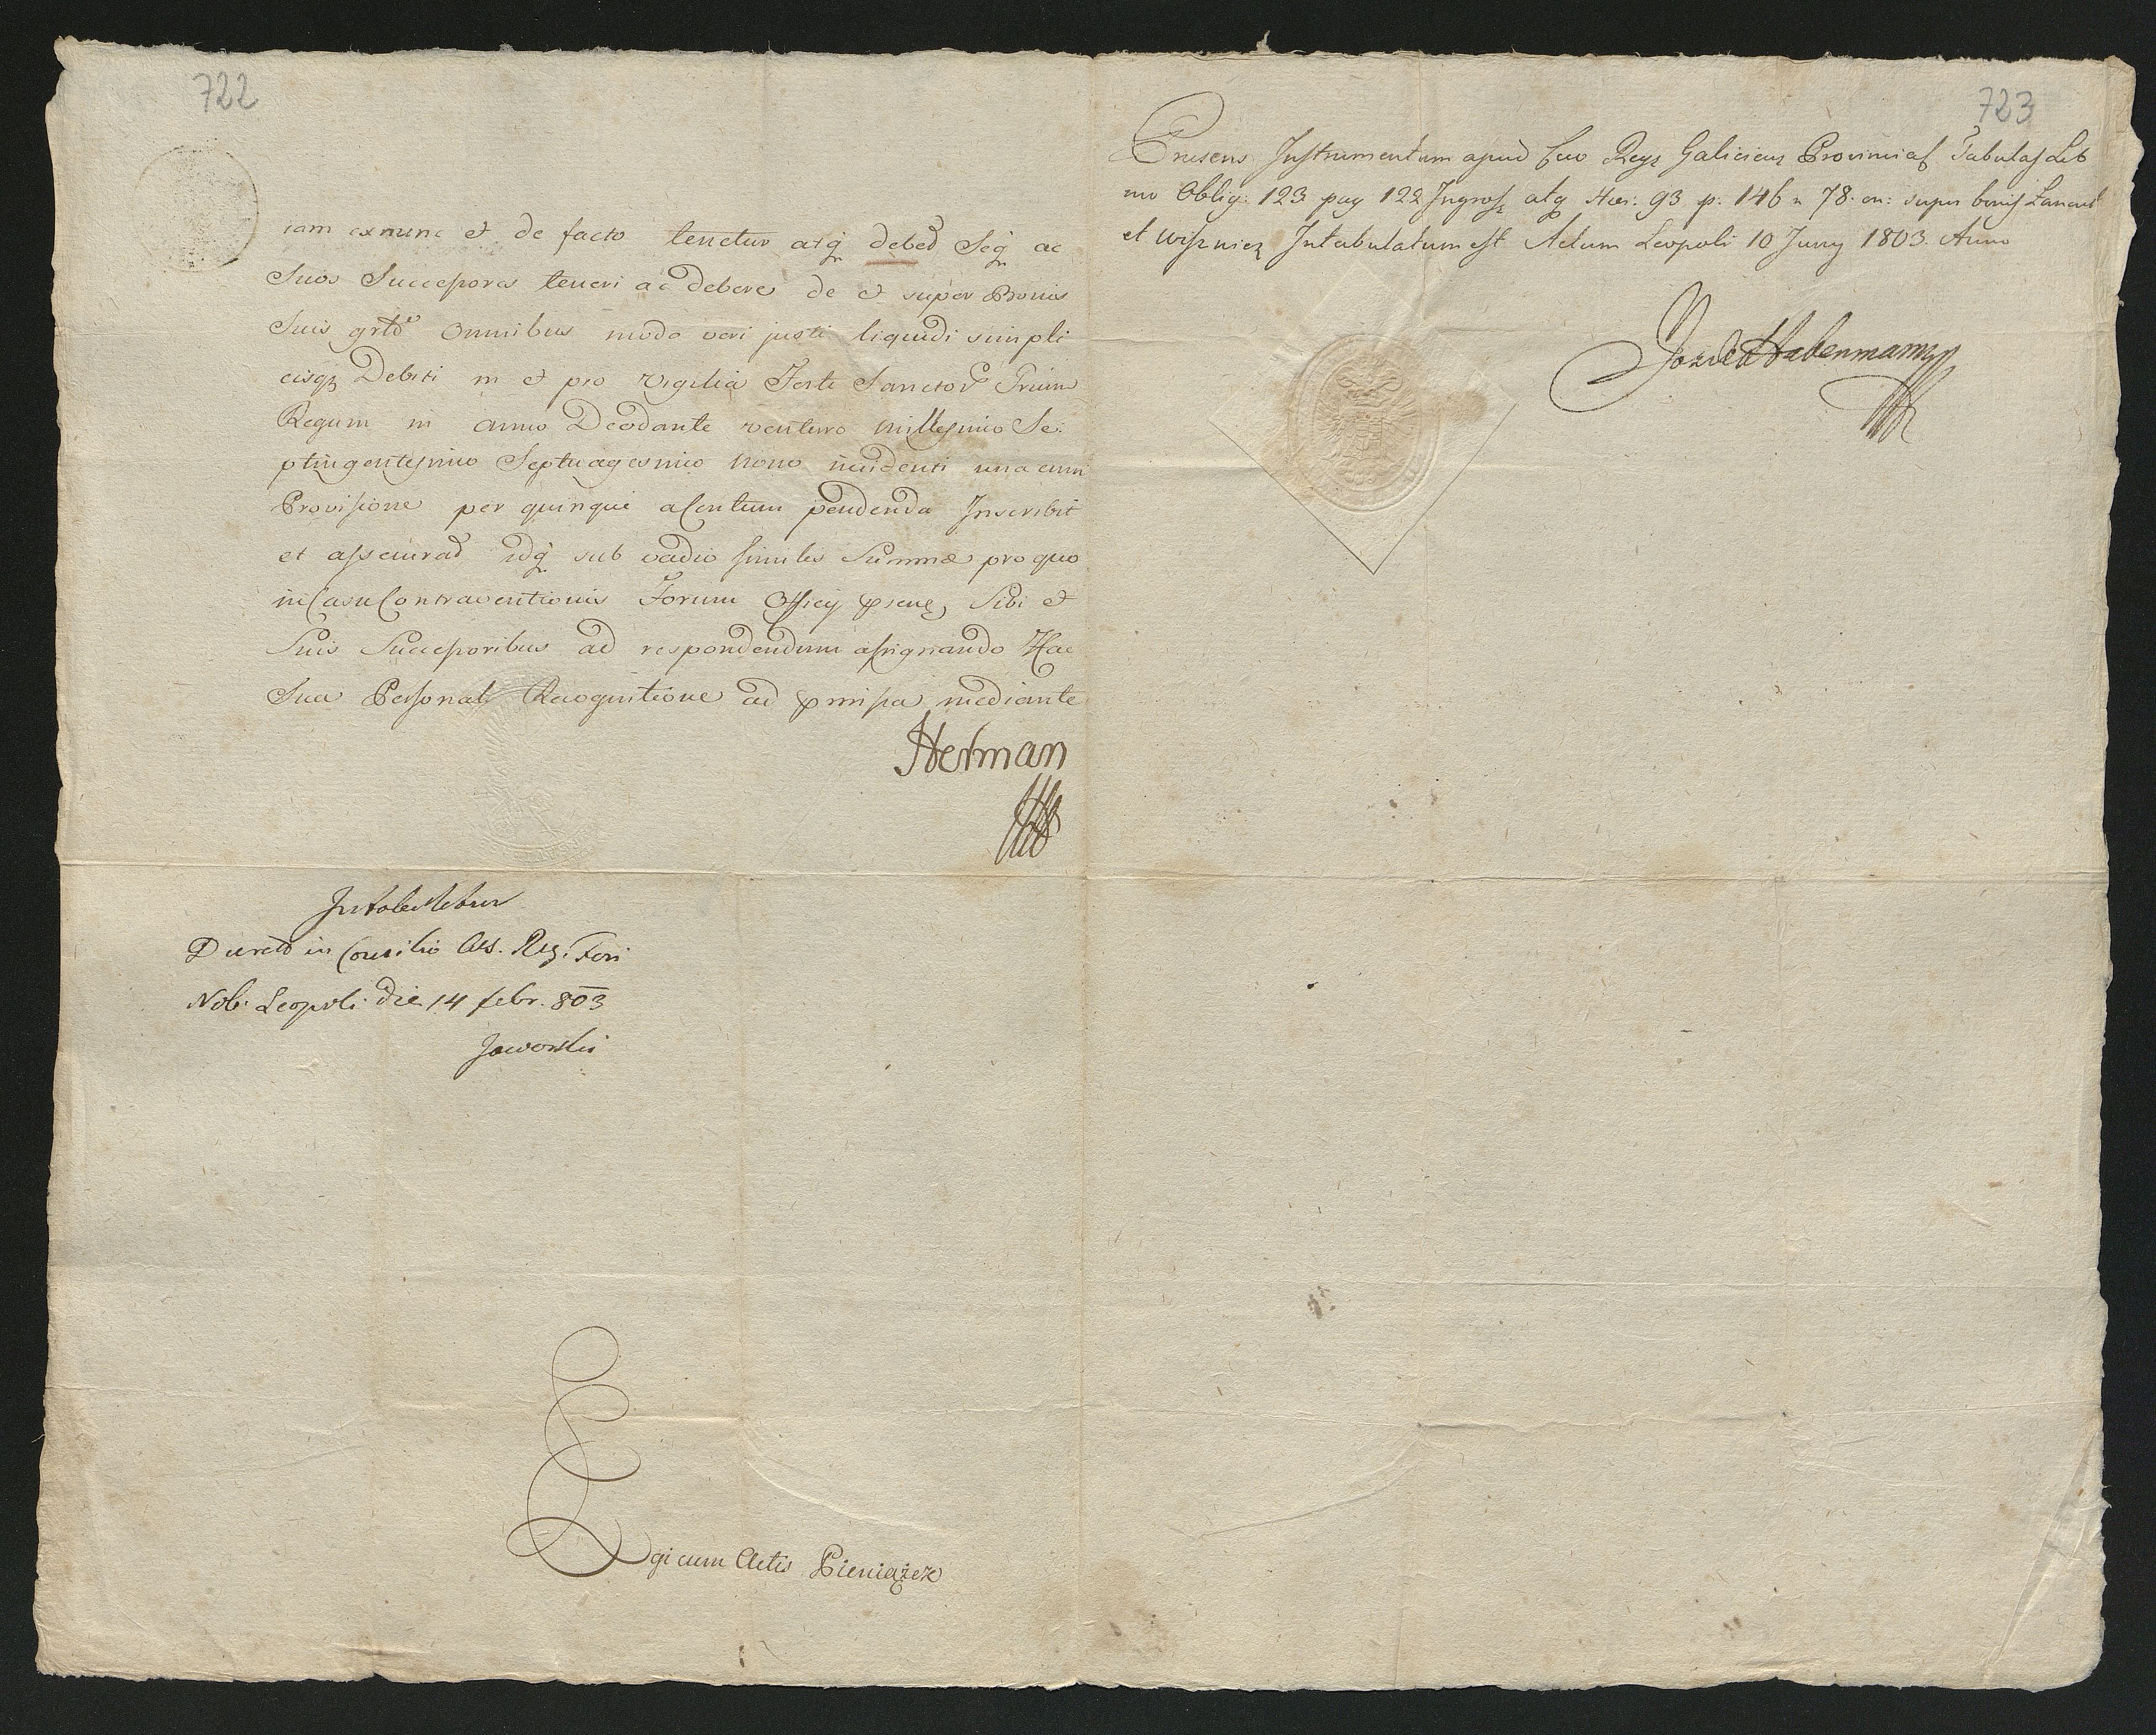 722
iam exnunc et de facto tenetur atq debed Seq ac
Suos Successores teneri ac debere de et super Bonis
Suis grtd Omnibus modo veri justi liquidi simpli
cisq Debiti in et pro Vigilia Festi Sanctor Trium
Regum in anno Deodante venturo Millesimo Se:
ptingentesimo Septuagesimo Nono incidenti una cum
Provisione per quinque a Centum pendenda Inscribit
et assecurad idq sub vadio similis Summæ pro quo
in Casu Contraventionis Forum Officij Sibi et
Suis Successoribus ad respondendum assignando Hac
Sua Personali Recognitione ad mediante
Hetman
Intabuletur
Decreto in Consilio Cæs. Reg. Fori
Nob. Leopoli die 14 febr. 803
Jaworski
Egi cum Actis Pieniążek
723
Præsens Instrumentum apud Cæo Regs Galiciens Provincial Tabulas Lib
ro Oblig: 123 pag 122 Ingross atq Hær: 93 p. 146 n 78. on: super bonis Lancut
et Wiszniez Intabulatum est Actum Leopoli 10 Juny 1803. Anno
Habenmann